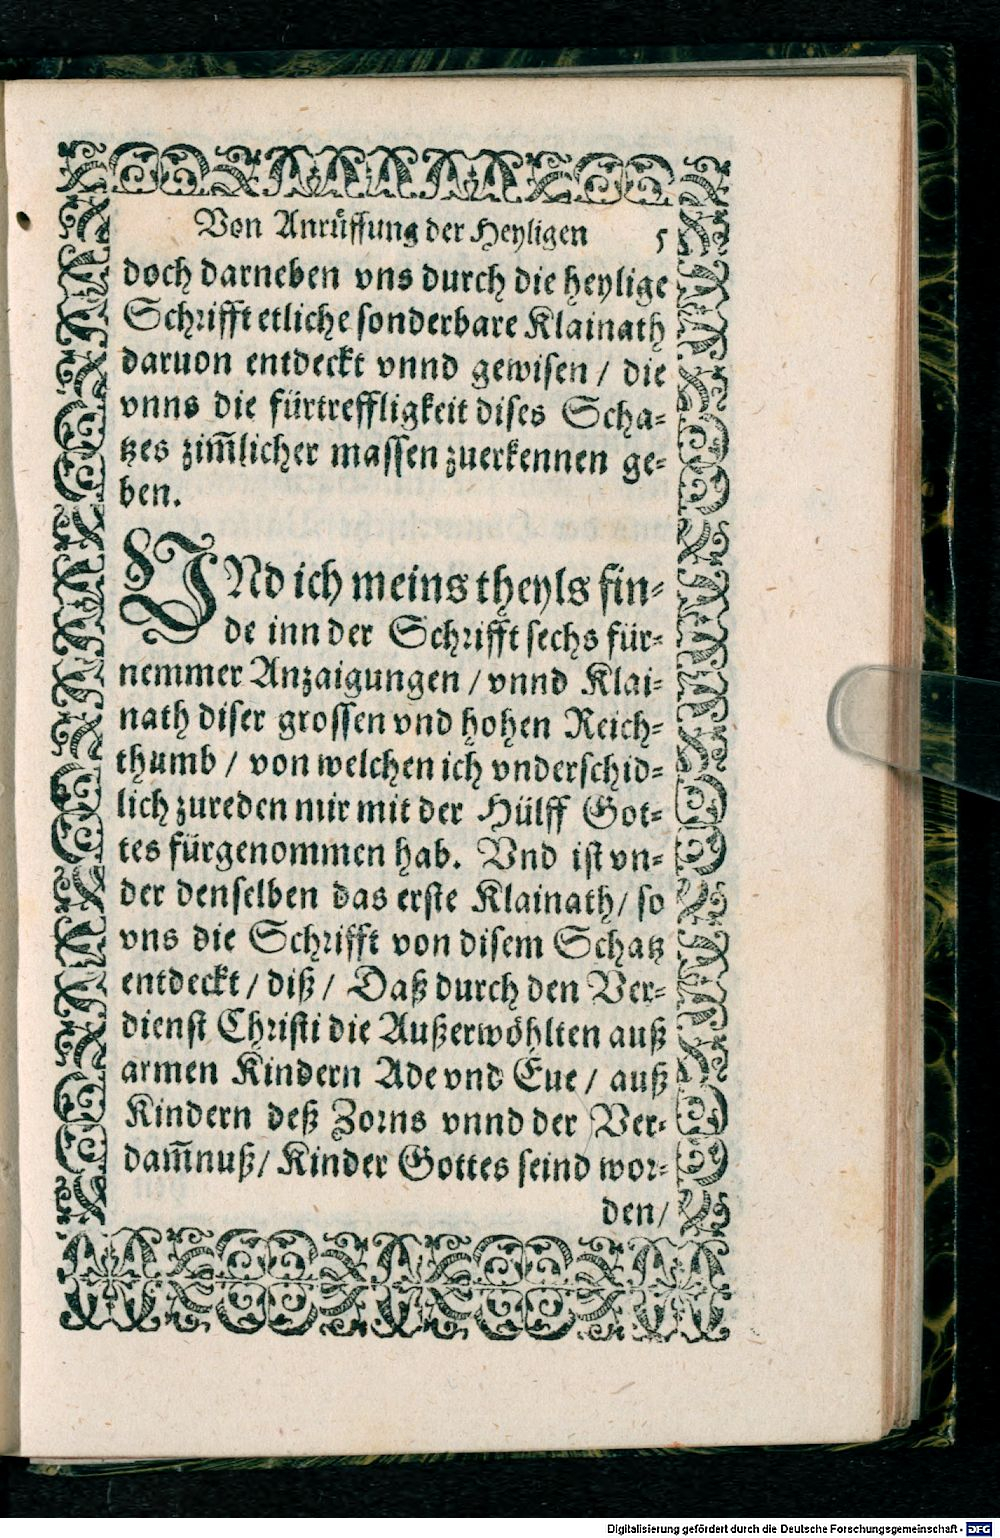 Von Anrüffung der Heyligen 5
doch darneben vns durch die heylige
Schrifft etliche sonderbare Klainath
daruon entdeckt vnnd gewisen / die
vnns die fürtreffligkeit dises Scha-
tzes zim̃licher massen zuerkennen ge-
ben.
VNd ich meins theyls fin-
de inn der Schrifft sechs für-
nemmer Anzaigungen / vnnd Klai-
nath diser grossen vnd hohen Reich-
thumb / von welchen ich vnderschid-
lich zureden mir mit der Hülff Got-
tes fürgenommen hab. Vnd ist vn-
der denselben das erste Klainath / so
vns die Schrifft von disem Schatz
entdeckt / diß / Daß durch den Ver-
dienst Christi die Außerwöhlten auß
armen Kindern Ade vnd Eue / auß
Kindern deß Zorns vnnd der Ver-
dam̃nuß / Kinder Gottes seind wor-
den /
Digitalisierung gefördert durch die Deutsche Forschungsgemeinschaft - DFG